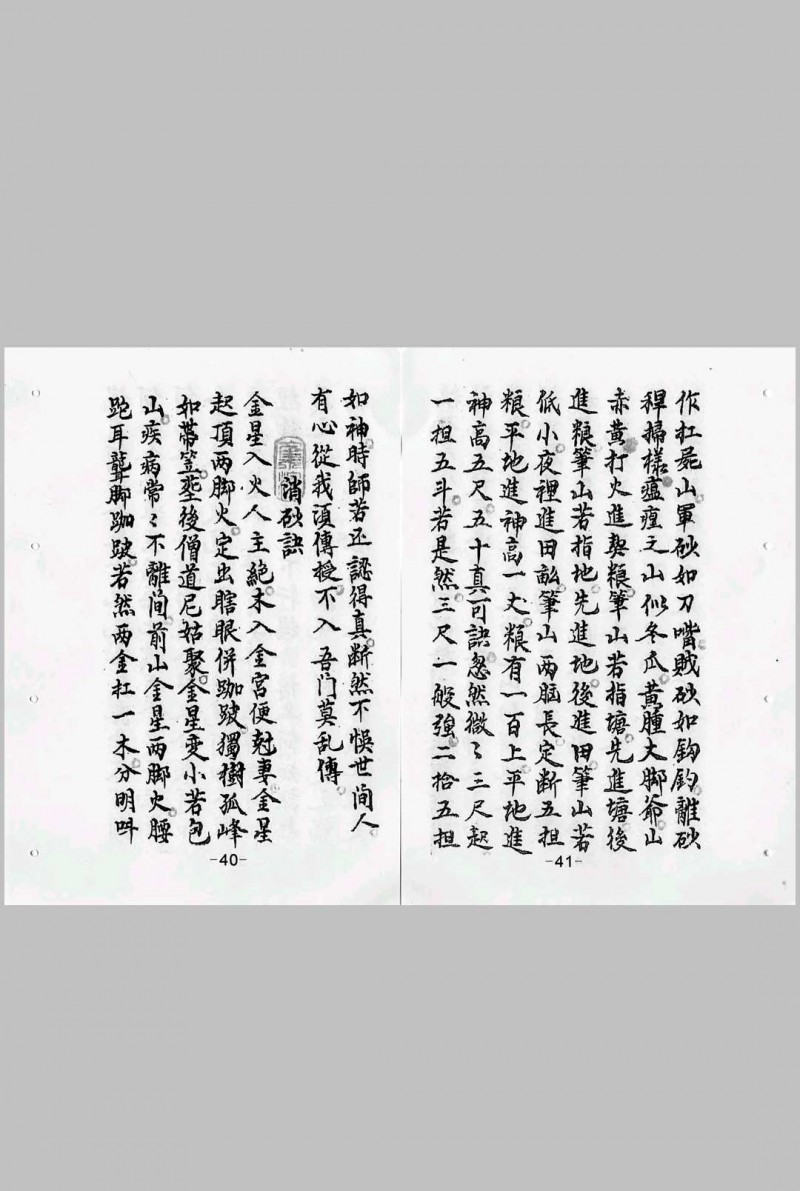 如神時師若还認得真断然不悞世间人
有心從我湏傳授不入吾门莫乱傳
消砂訣
金星入火人主絶木入金宮便尅妻金星
起頂两脚火定出瞎眼併跏跛獨樹孤峰
如帶笠塟後僧道尼姑聚金星变小若包
山疾病常〻不離间前山金星两脚火腰
跎耳聾脚跏跛若然两金扛一木分明叫
-40-
作扛屍山軍砂如刀嘴賊砂如鈎鈎離砂
稈掃樣瘟㾮之山似冬瓜黄腫大脚爺山
赤黄打火進契粮筆山若指塘先進塘後
進粮筆山若指地先進地後進田筆山若
低小夜裡進田畆筆山两腦長定断五担
粮平地進神高一丈粮有一百上平地進
神高五尺五十真可訣忽然微〻三尺起
一担五斗若是然三尺一般強二拾五担
-41-